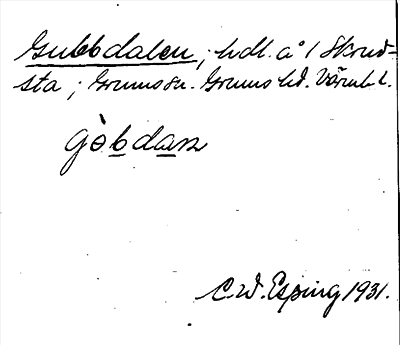 Gubbdalen, hdl. å 1 Skrud-
sta; Grums sn. Grums hd. Värml.
gòbdan
C.W. Esping 1931.